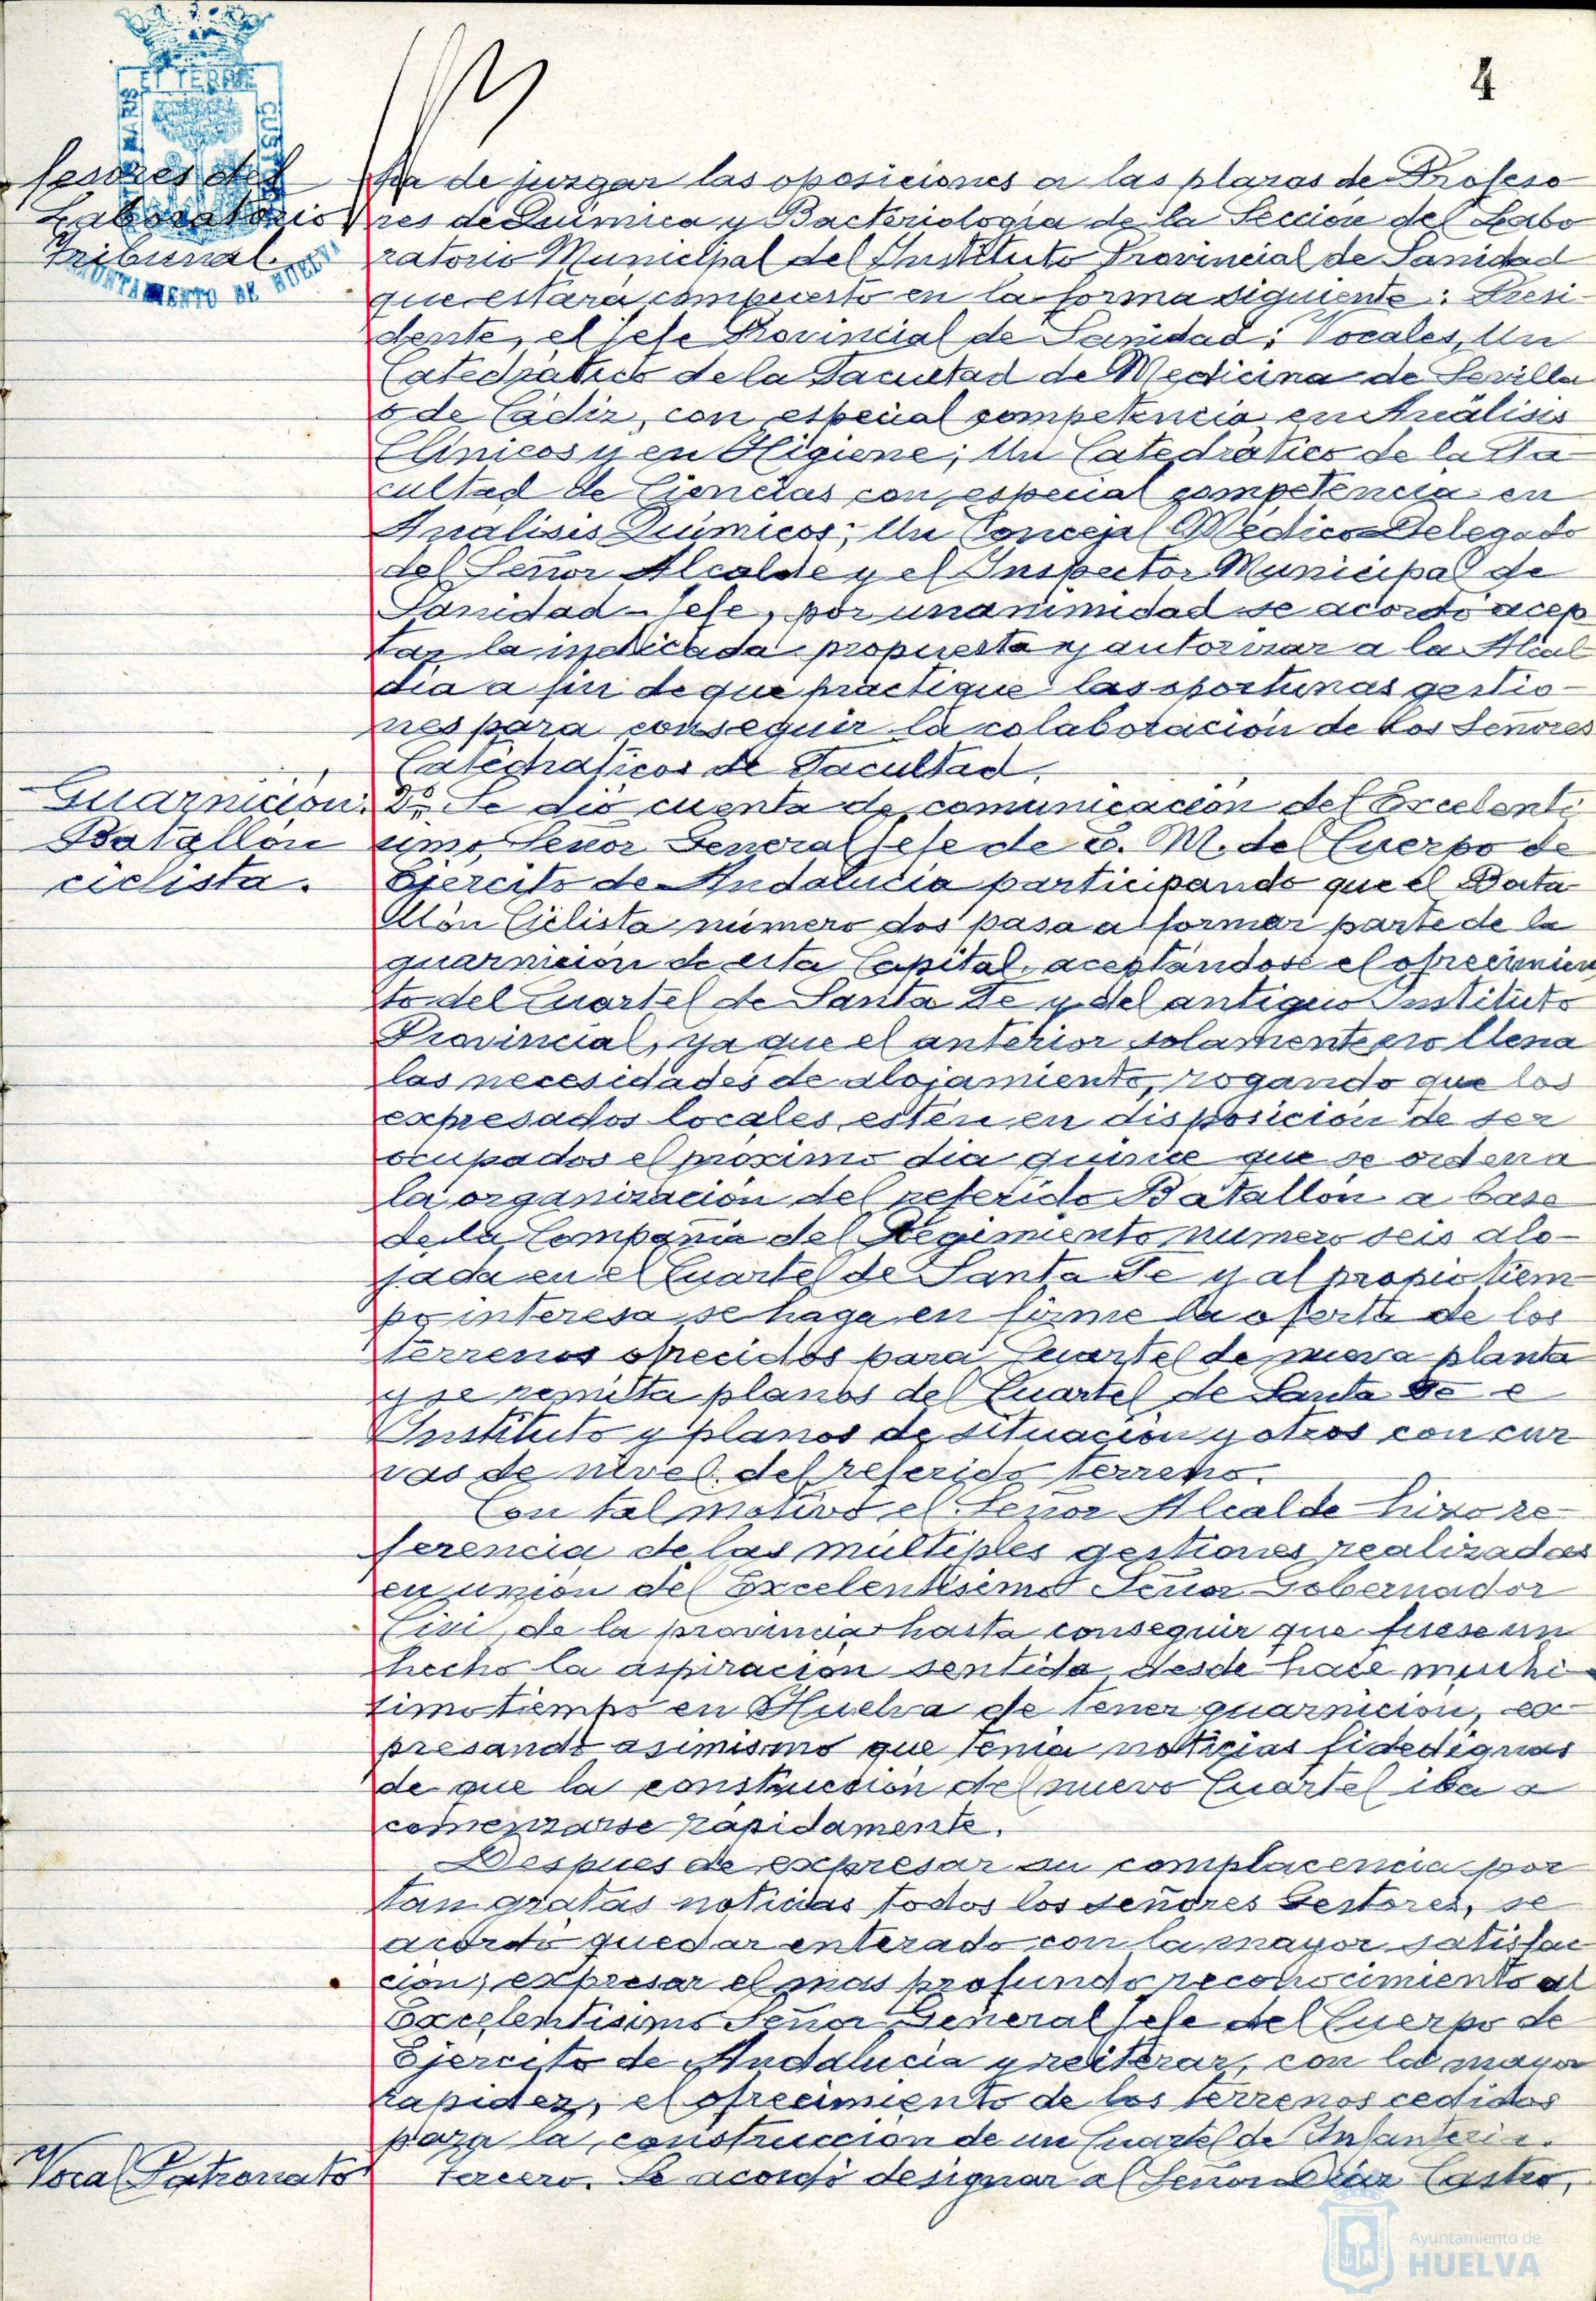 4
fesores del
Laboratorio
Tribunal.
ha de juzgar las oposiciones a las plazas de Profeso
res de Química y Bacteriología de la Sección del Labo
ratorio Municipal del Instituto Provincial de Sanidad
que estará compuesto en la forma siguiente: Presi-
dente, el Jefe Provincial de Sanidad; Vocales, Un
Catedrático de la Facultad de Medicina de Sevilla
o de Cádiz, con especial competencia en Análisis
Clínicos y en Higiene; Un Catedrático de la Fa-
cultad de Ciencias con especial competencia en
Analisis Químicos; Un Concejal Médico Delegado
del Señor Alcalde y el Inspector Municipal de
Sanidad-Jefe, por unanimidad se acordó acep
tar la indicada propuesta y autorizar a la Alcal
día a fin de que practique las oportunas gestio-
nes para conseguir la colaboración de los Señores
Catedráticos de Facultad.
Guarnición.
Batallón
ciclista.
2º. Se dió cuenta de comunicación del Excelentí
simo Señor General Jefe de E. M. del Cuerpo de
Ejército de Andalucía participando que el Bata-
llón Ciclista número dos pasa a formar parte de la
guarnición de esta Capital, aceptándose el ofrecimien
to del Cuartel de Santa Fe y del antiguo Instituto
Provincial, ya que el anterior solamente no llena
las necesidades de alojamiento, rogando que los
expresados locales estén en disposición de ser
ocupados el próximo dia quince que se ordena
la organización del referido Batallón a base
de la Compañía del Regimiento numero seis alo-
jada en el Cuartel de Santa Fe y al propio tiem-
po interesa se haga en firme la oferta de los
terrenos ofrecidos para Cuartel de nueva planta
y se remita planos del Cuartel de Santa Fe e
Instituto y planos de situación y otros con cur
vas de nivel del referido terreno.
Con tal motivo el Señor Alcalde hizo re-
ferencia de las múltiples gestiones realizadas
en unión del Excelentísimo Señor Gobernador
Civil de la provincia hasta conseguir que fuese un
hecho la aspiración sentida desde hace muchí-
simo tiempo en Huelva de tener guarnición, ex-
presando asimismo que tenía noticias fidedignas
de que la construcción del nuevo Cuartel iba a
comenzarse rápidamente.
Despues de expresar su complacencia por
tan gratas noticias todos los señores Gestores, se
acordó quedar enterado con la mayor satisfac
ción, expresar el mas profundo reconocimiento al
Excelentísimo Señor General Jefe del Cuerpo de
Ejército de Andalucía y reiterar, con la mayor
rapidez, el ofrecimiento de los terrenos cedidos
para la construccion de un Cuartel de Infantería.
Vocal Patronato
tercero. Se acordó designar al Señor Díaz Castro,
ET TERRE
MARIS
CUST
AYUNTAMIENTO DE HUELVA
Ayuntamiento de
HUELVA